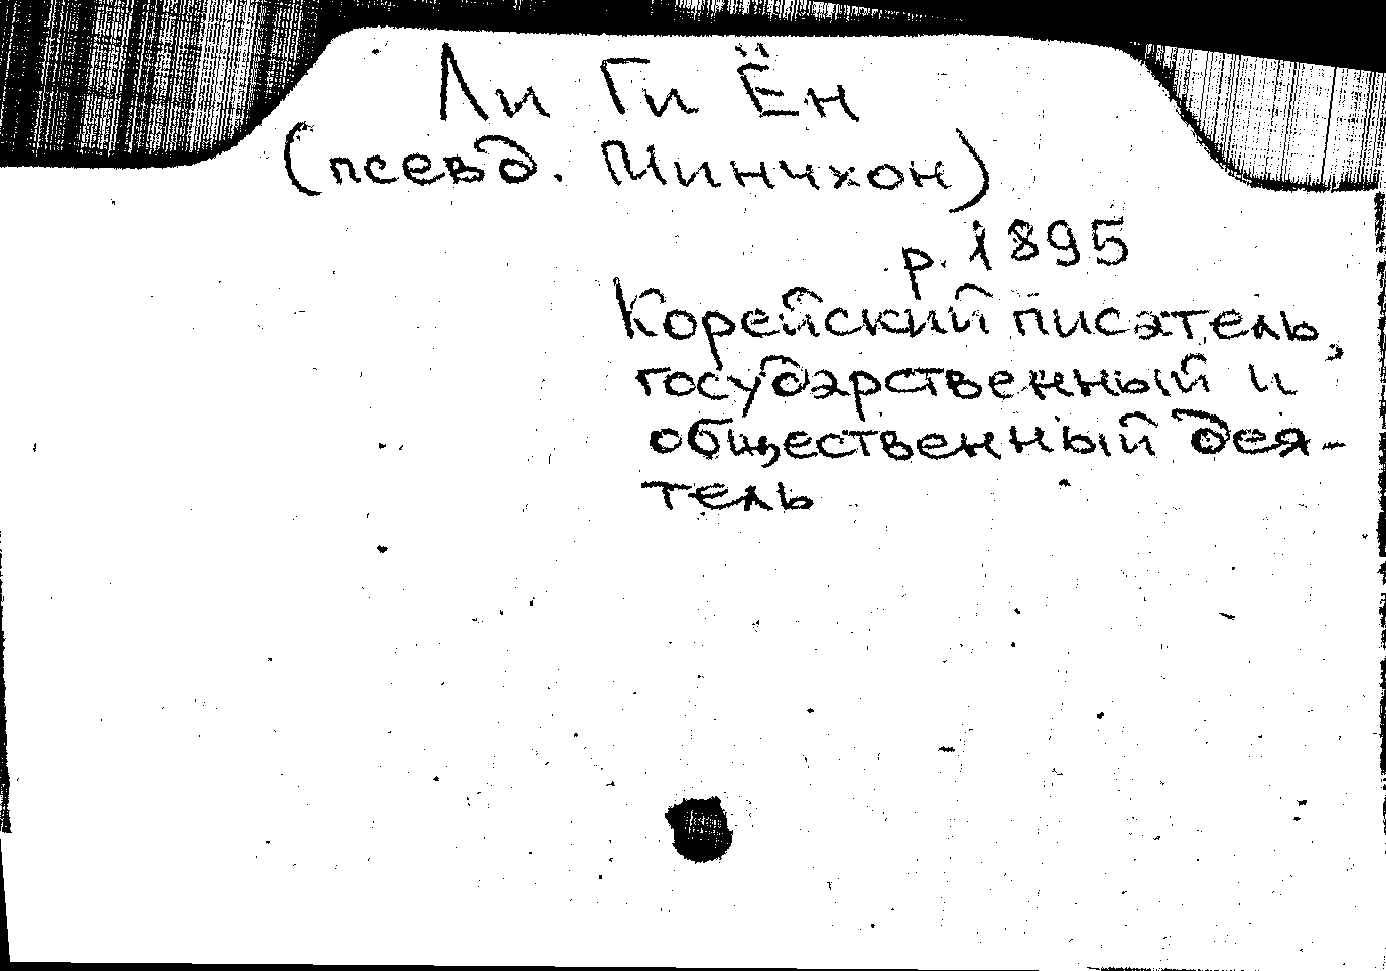 Ли Ги Ён
(псевд. Минчхон)
р. 1895
Корейский писатель,
государственный и
общественный дея-
тель